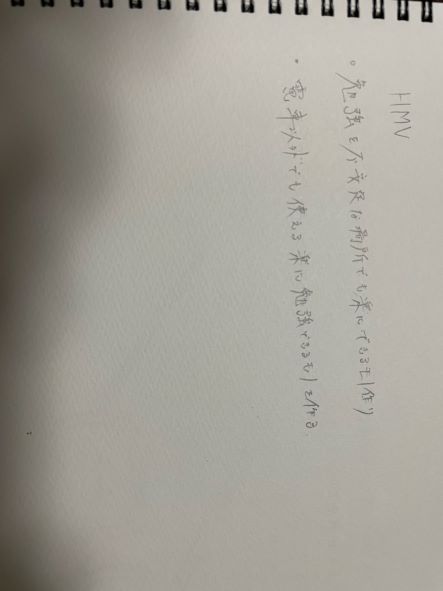 HMV
。勉強を不安定な場所でも楽にできるモノ作り
・電車以外でも使える楽に勉強できるものを作る。